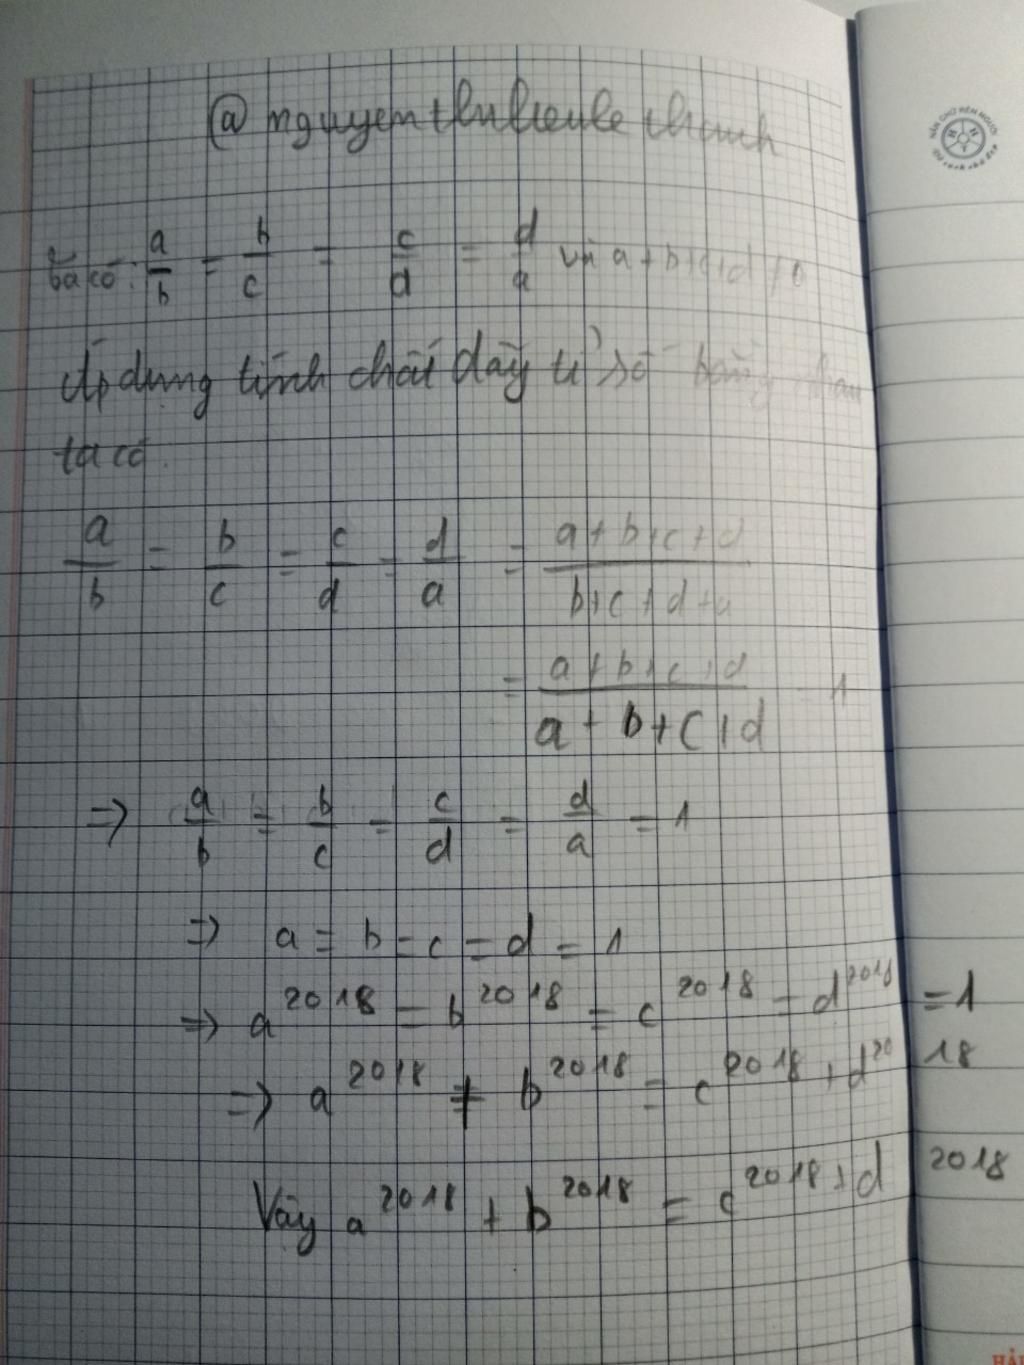 @ nguyen
Ta có: a/b = b/c = c/d = d/a và a + b + c + d ≠ 0
Áp dụng tính chất dãy tỉ số bằng nhau
ta có
a/b = b/c = c/d = d/a = (a + b + c + d)/(b + c + d + a)
= (a + b + c + d)/(a + b + c + d) = 1
=> a/b = b/c = c/d = d/a = 1
=> a = b = c = d = 1
=> a^2018 = b^2018 = c^2018 = d^2018 = 1
=> a^2018 + b^2018 = c^2018 + d^2018
Vậy a^2018 + b^2018 = c^2018 + d^2018